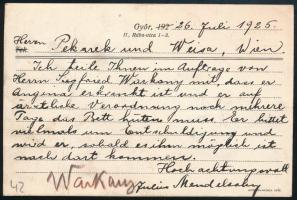 Győr, 192 26. Juli 1925.
II., Rába-utca 1-3.
Herrn Pekarek und Weisz, Wien
Ich teile Ihnen im Auftrage von
Herrn Siegfried Warkany mit dass er
Angina erkrankt ist und er auf
ärztliche Verordnung noch mehrere
Tage das Bett hüten muss. Er bittet
vielmals um Entschuldigung und
wird er, sobald es ihm möglich ist
nach dort kommen.
Hochachtungsvoll
Warkany Julius Mendelsohn
42